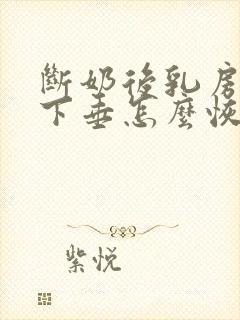 斷奶後乳房
下垂怎麼恢
紫悅